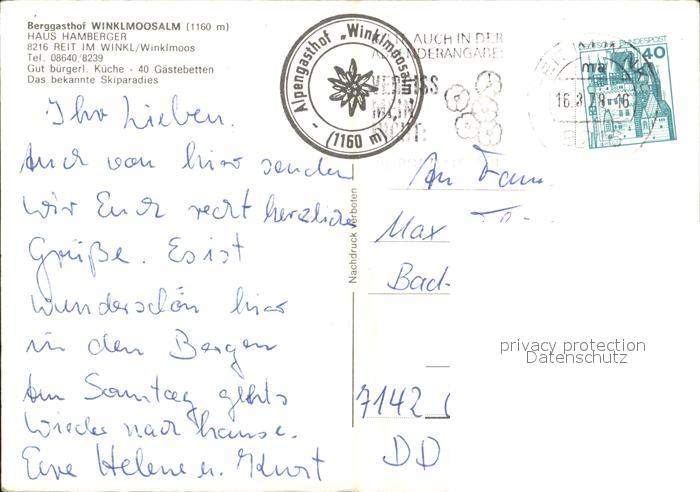 Berggasthof WINKLMOOSALM (1160 m)
HAUS HAMBERGER
8216 REIT IM WINKL/Winklmoos
Tel. 08640/8239
Gut bürgerl. Küche - 40 Gästebetten
Das bekannte Skiparadies
Alpengasthof „Winklmoosalm"
- (1160 m) -
AUCH IN DER
MEIN
NICHT:
16.3.78-16
DEUTSCHE BUNDESPOST
40
Ihr Lieben.
Auch von hier senden
wir Euch recht herzliche
Grüße. Es ist
wunderschön hier
in den Bergen
Am Sonntag gehts
wieder nach hause.
Eure Helene u. Kurt
Nachdruck verboten
An Fam.
Max
Bad-
7142
DD
privacy protection
Datenschutz